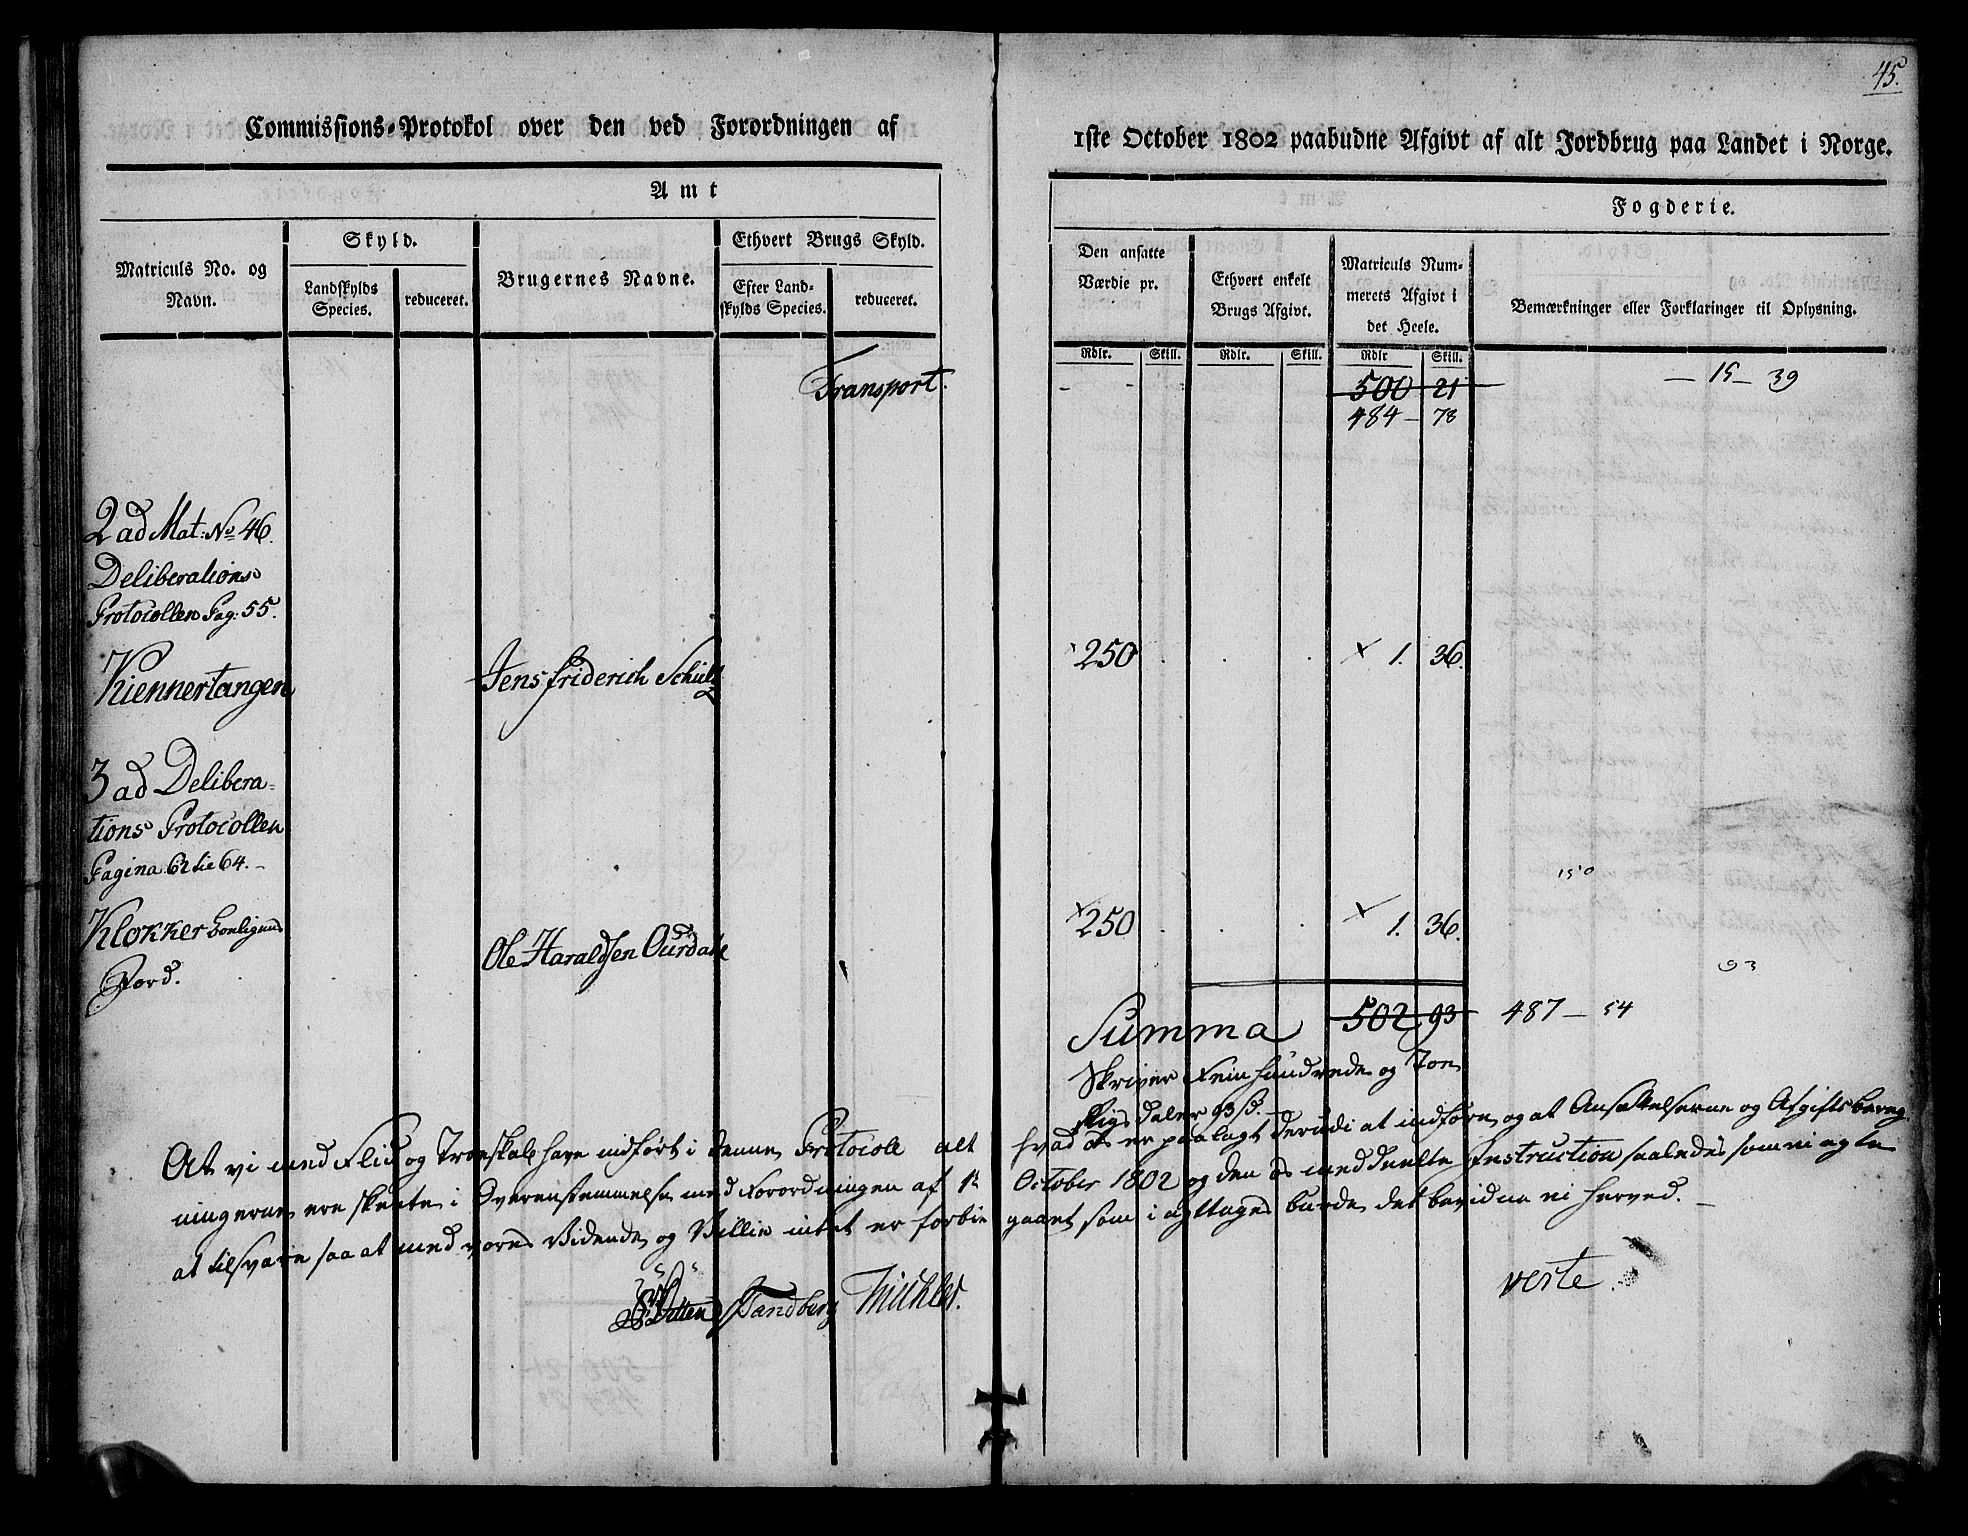 45.
Commissions-Protokol over den ved Forordningen af 1ste October 1802 paabudne Afgivt af alt Jordbrug paa Landet i Norge.
Amt
Fogderie.
Matriculs No. og Navn.
Skyld.
Landskylds Species.
reduceret.
Brugernes Navne.
Ethvert Brugs Skyld.
Efter Landskylds Species.
reduceret.
Den ansatte Værdie pr.
Ethvert enkelt Brugs Afgivt.
Matriculs Nummerets Afgivt i det Heele.
Bemærkninger eller Forklaringer til Oplysning.
Rdlr. Skill. Rdlr. Skill. Rdlr Skill.
Transport. - - 500 21 — 15 — 39
484 — 78
2 ad Mat: No 46.
Deliberations
Protocollen Pag: 55.
Kiennertangen Jens Friderich Schultz 250 . . . × 1. 36.
3 ad Delibera-
tions Protocollen
Pagina 62 tie 64. -
150
Klokker Bonligend Ole Haraldsen Ourdahl × 250 . . . × 1. 36.
Jord.
93
Summa 502 93 487 — 54
Skriver Fem hundrede og Toe
Rigsdaler 93 ß. -
At vi med Flid og Troeskab have indført i denne Protocoll alt hvad os er paalagt derudi at indføre, og at Ansættelserne og Afgifts bereg
ningerne ere skeete i Overensstemmelse med Forordningen af 1te October 1802 og den os meddeelte Instruction saaledes som vi agte
at tilsvare saa at med vores Vidende og Villie intet er forbie gaaet som i agttages burde, det bevidne vi herved. —
Tandberg
verte.